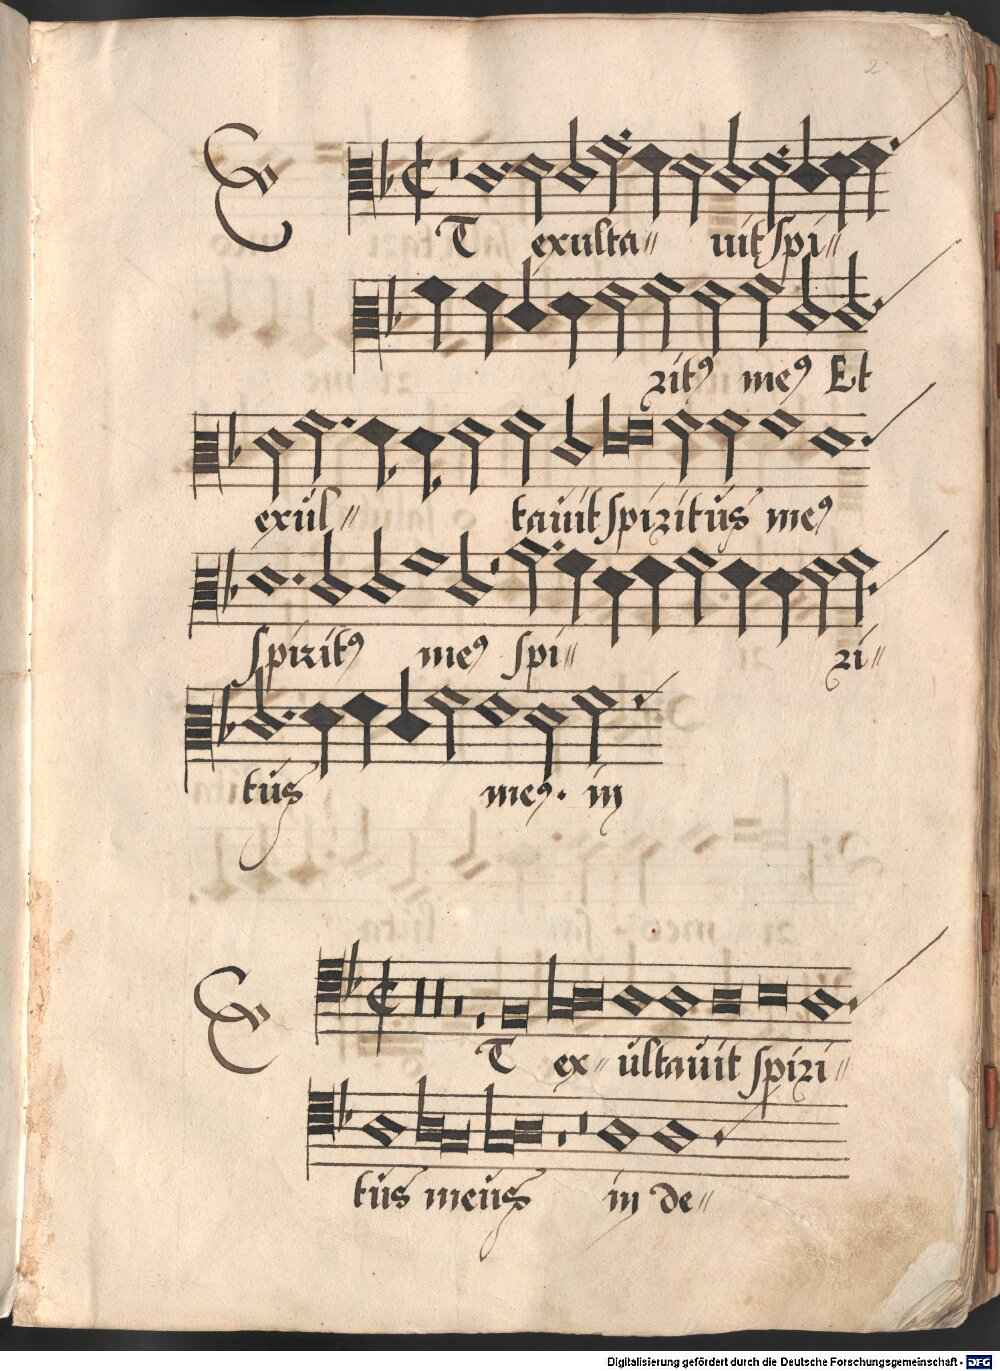 2
ET exulta〃 uit spi〃
ritꝰ meꝰ Et
exul〃 tauit spiritus meꝰ
spiritꝰ meꝰ spi〃 ri〃
tus meꝰ. in
ET ex〃 ultauit spiri〃
tus meus in de〃
Digitalisierung gefördert durch die Deutsche Forschungsgemeinschaft - DFG